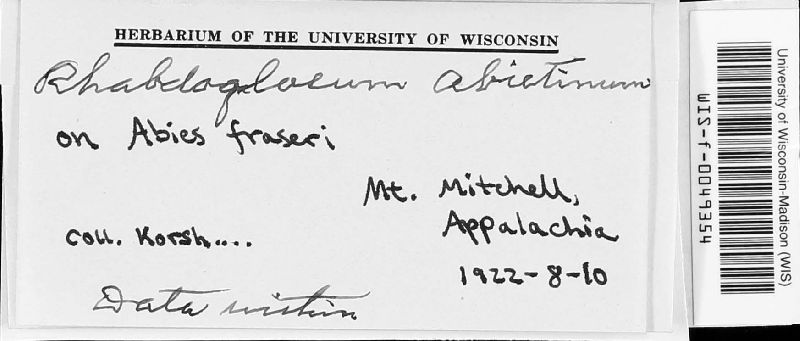 HERBARIUM OF THE UNIVERSITY OF WISCONSIN
Rhabdogloeum abietinum
on Abies fraseri
Mt. Mitchell,
Appalachia
coll. Korsh....
1922-8-10
Data within
University of Wisconsin-Madison (WIS)
WIS-f-0049354